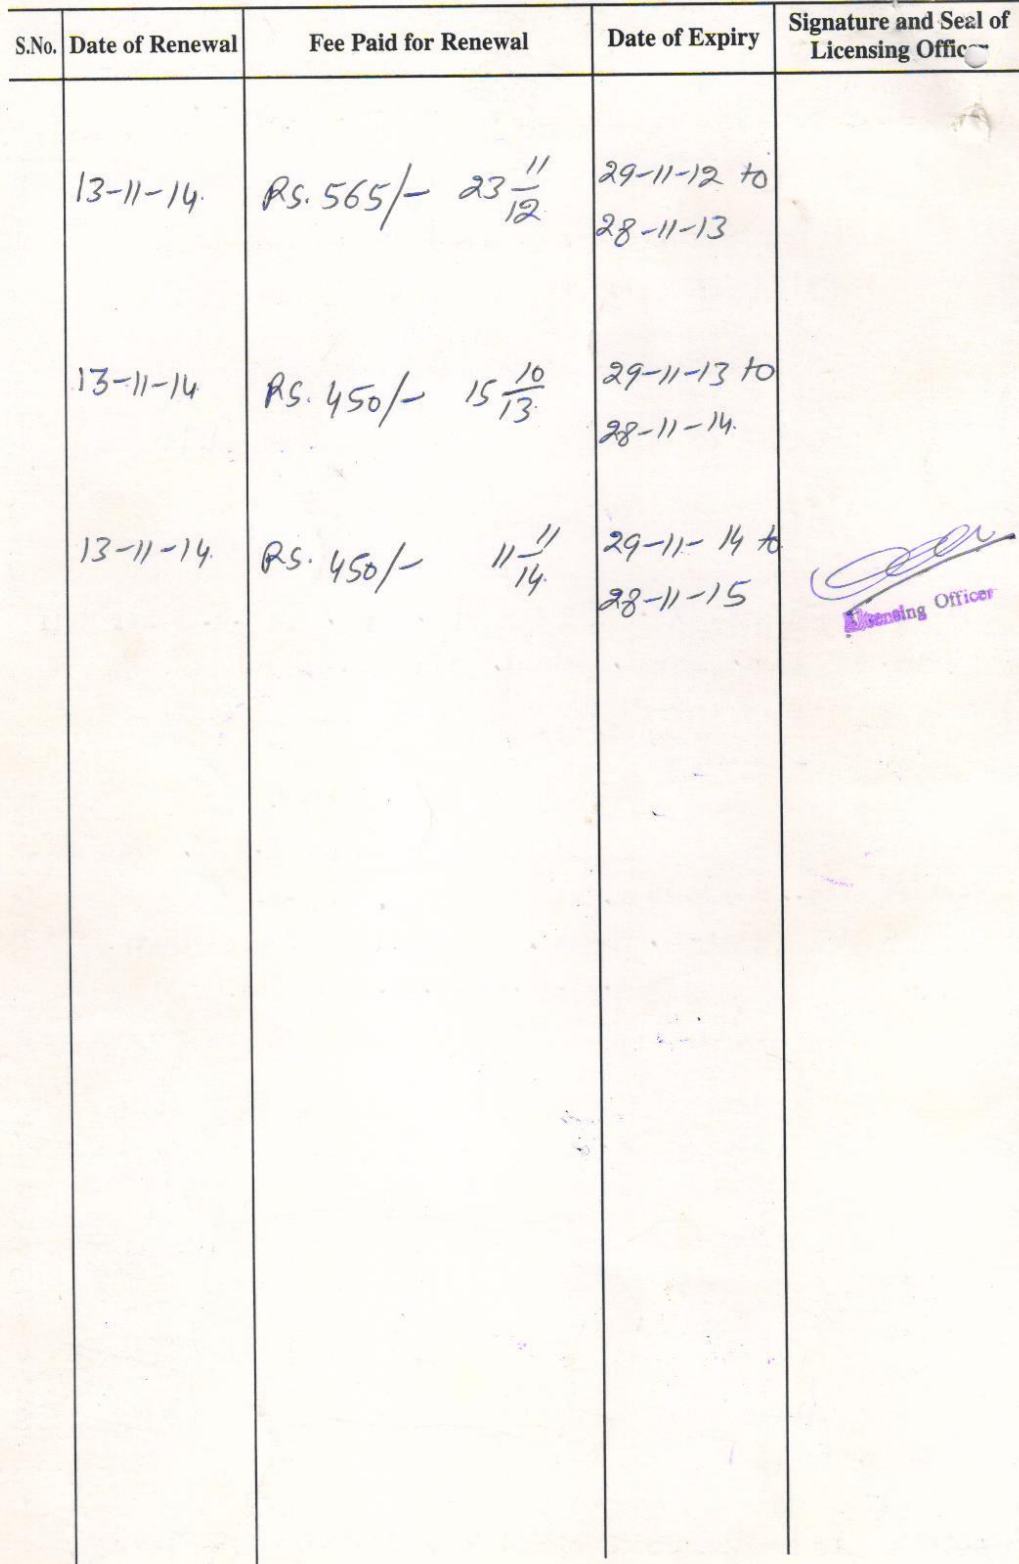 S.No. Date of Renewal Fee Paid for Renewal Date of Expiry Signature and Seal of
Licensing Officer
13-11-14. Rs. 565/- 23 11/12 29-11-12 to
28-11-13
13-11-14 Rs. 450/- 15 10/13. 29-11-13 to
28-11-14.
13-11-14. Rs. 450/- 11 11/14. 29-11-14 to
28-11-15
Licensing Officer